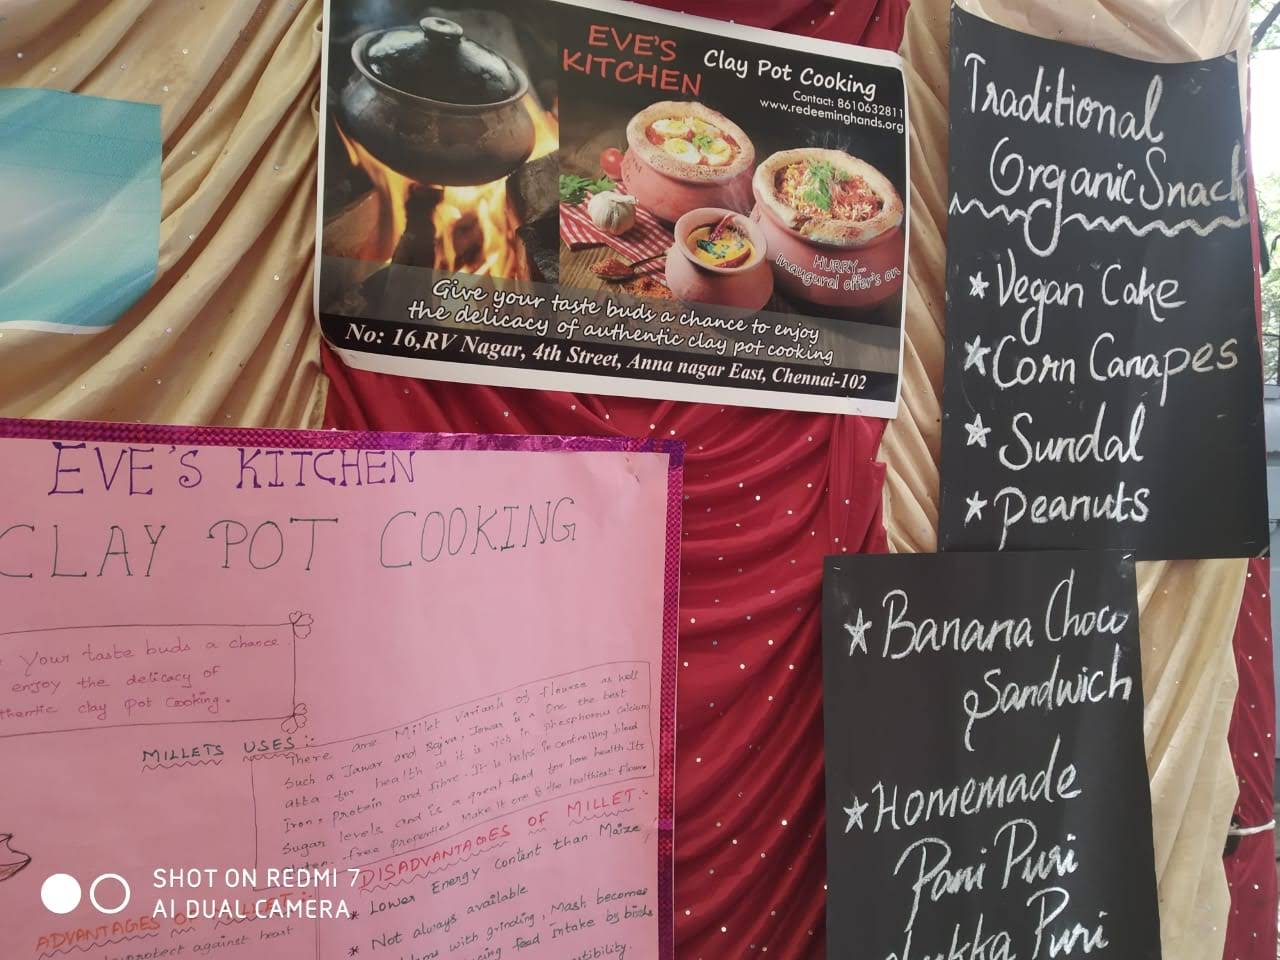 EVE'S
KITCHEN
Clay Pot Cooking
Contact: 8610632811
www.redeeminghands.org
HURRY...
Inaugural offer's on
Give your taste buds a chance to enjoy
the delicacy of authentic clay pot cooking
No: 16,RV Nagar, 4th Street, Anna nagar East, Chennai-102
Traditional
Organic Snack
* Vegan Cake
* Corn Canapes
* Sundal
* Peanuts
* Banana Choco
Sandwich
* Homemade
Pani Puri
Puri
EVE'S KITCHEN
CLAY POT COOKING
your taste buds a chance
enjoy the delicacy of
clay pot Cooking.
MILLETS USES :-
There are Millet Variants of flourse as well
Such a Jawar and Bajra, Jowar is a One the best
atta for health as it is rich in phosphorus calcium
Iron, protein and fibre. It is helps in controlling blood
Sugar levels and is a great food for bone health Its
free properties Make it one of the healthiest flours
DISADVANTAGES OF MILLET :-
* Lower Energy content than Maize
* Not always available
with grinding, Mash becomes
feed Intake by birds
ADVANTAGES OF MILLET :-
protect against heart
SHOT ON REDMI 7
AI DUAL CAMERA